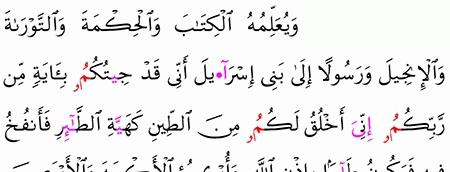 وَيُعَلِّمُهُ الْكِتَٰبَ وَالْحِكْمَةَ وَالتَّوْرَىٰةَ
وَالْإِنجِيلَ وَرَسُولًا إِلَىٰ بَنِى إِسْرَآ•يلَ أَنِّى قَدْ جِيتُكُمُۥ بِـَٔايَةٍ مِّن
رَّبِّكُمُۥ إِنِّىَ أَخْلُقُ لَكُمُۥ مِنَ الطِّينِ كَهَيَّةِ الطَّٰٓئِرِ فَأَنفُخُ